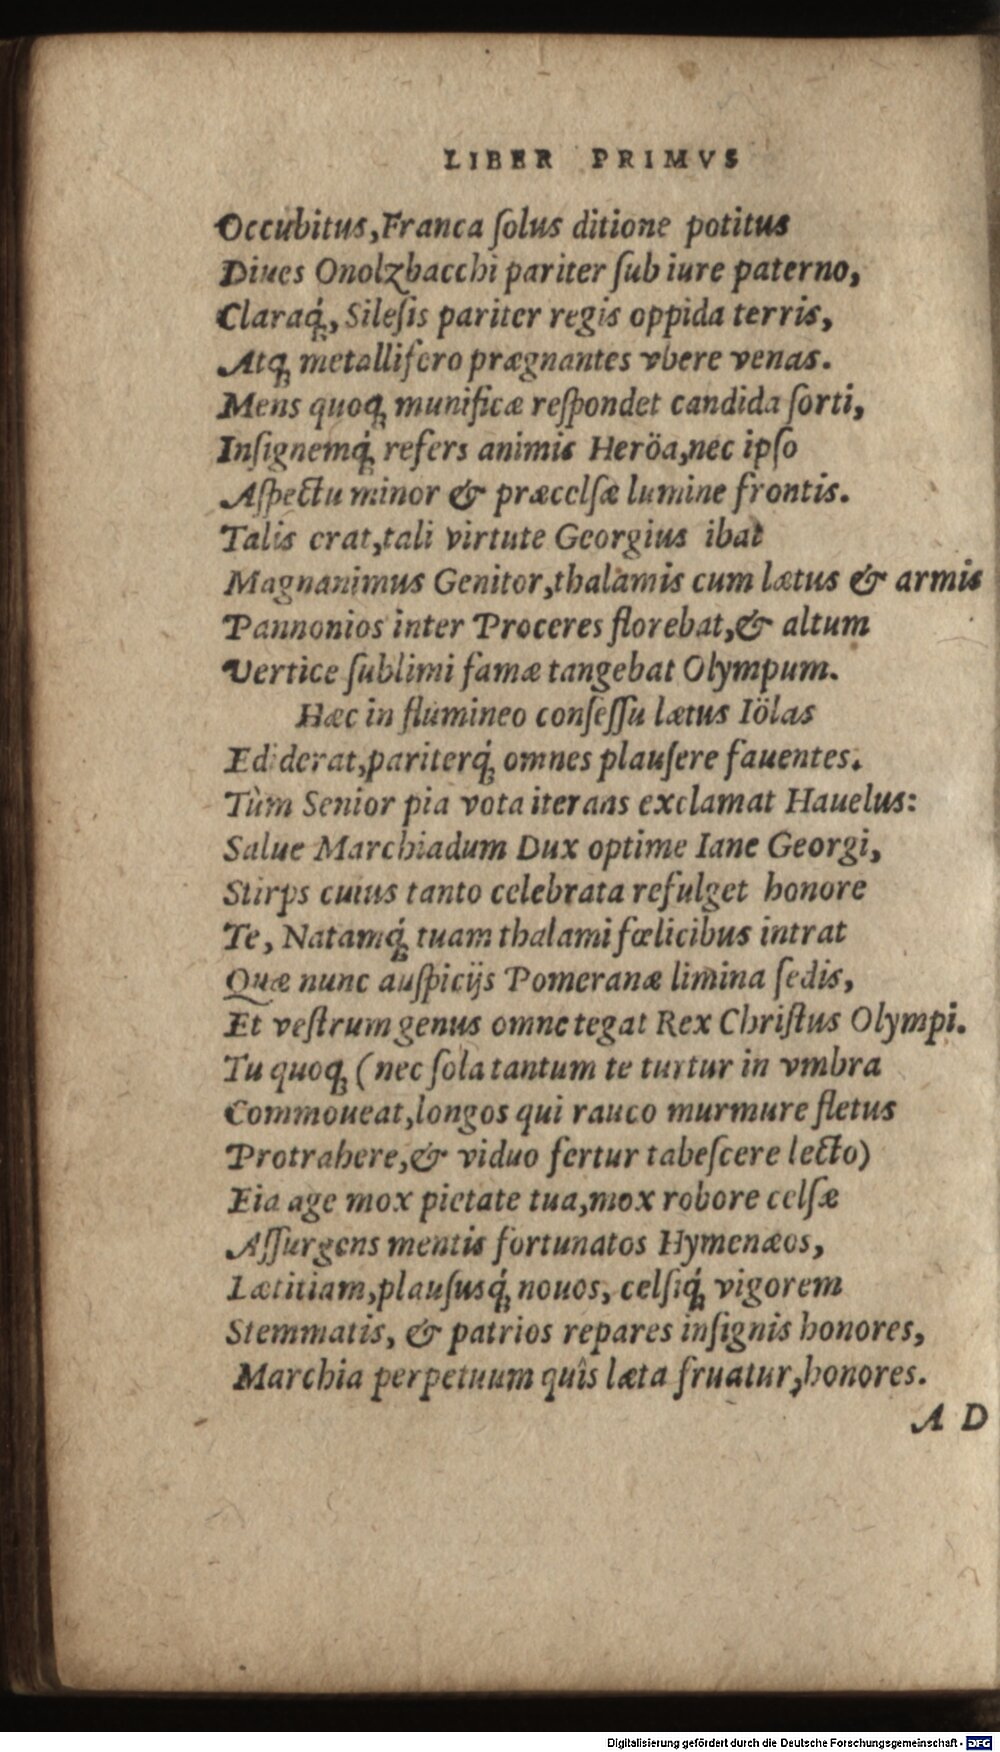 LIBER PRIMVS
Occubitus, Franca ſolus ditione potitus
Diues Onolzbacchi pariter ſub iure paterno,
Claraq́ꝫ, Sileſis pariter regis oppida terris,
Atqꝫ metallifero prægnantes vbere venas.
Mens quoqꝫ munificæ reſpondet candida ſorti,
Inſignemq́ꝫ refers animis Heröa, nec ipſo
Aſpectu minor & præcelſæ lumine frontis.
Talis erat, tali virtute Georgius ibat
Magnanimus Genitor, thalamis cum lætus & armis
Pannonios inter Proceres florebat, & altum
Vertice ſublimi famæ tangebat Olympum.
Hæc in flumineo conſeſſu lætus Iölas
Ediderat, pariterq́ꝫ omnes plauſere fauentes.
Tùm Senior pia vota iterans exclamat Hauelus:
Salue Marchiadum Dux optime Iane Georgi,
Stirps cuius tanto celebrata refulget honore
Te, Natamq́ꝫ tuam thalami fœlicibus intrat
Quæ nunc auſpicijs Pomeranæ limina ſedis,
Et veſtrum genus omne tegat Rex Chriſtus Olympi.
Tu quoqꝫ (nec ſola tantum te turtur in vmbra
Commoueat, longos qui rauco murmure fletus
Protrahere, & viduo fertur tabeſcere lecto)
Eia age mox pietate tua, mox robore celſæ
Aſſurgens mentis fortunatos Hymenæos,
Lætitiam, plauſusq́ꝫ nouos, celſiq́ꝫ vigorem
Stemmatis, & patrios repares inſignis honores,
Marchia perpetuum quîs læta fruatur, honores.
A D
Digitalisierung gefördert durch die Deutsche Forschungsgemeinschaft - DFG